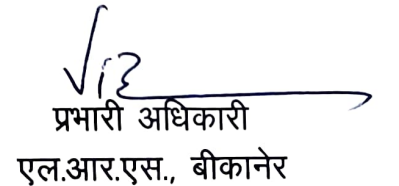 प्रभारी अधिकारी
एल.आर.एस., बीकानेर